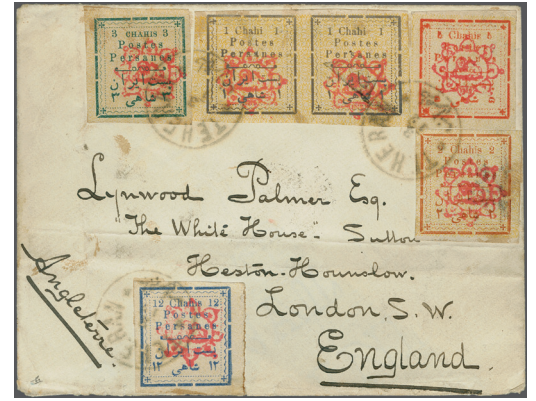 3 CHAHIS 3
Postes
Persanes
۳ شاهی ۳
1 Chahi 1
Postes
Persanes
شاهی
1 Chahi 1
Postes
Persanes
شاهی
5 Chahis 5
TEHERAN
2 Chahis 2
Postes
Lynwood Palmer Esq.
"The White House" Sutton
Heston-Hounslow.
London, S. W.
England.
Angleterre.
12 Chahis 12
Postes
Persanes
۱۲ شاهی ۱۲